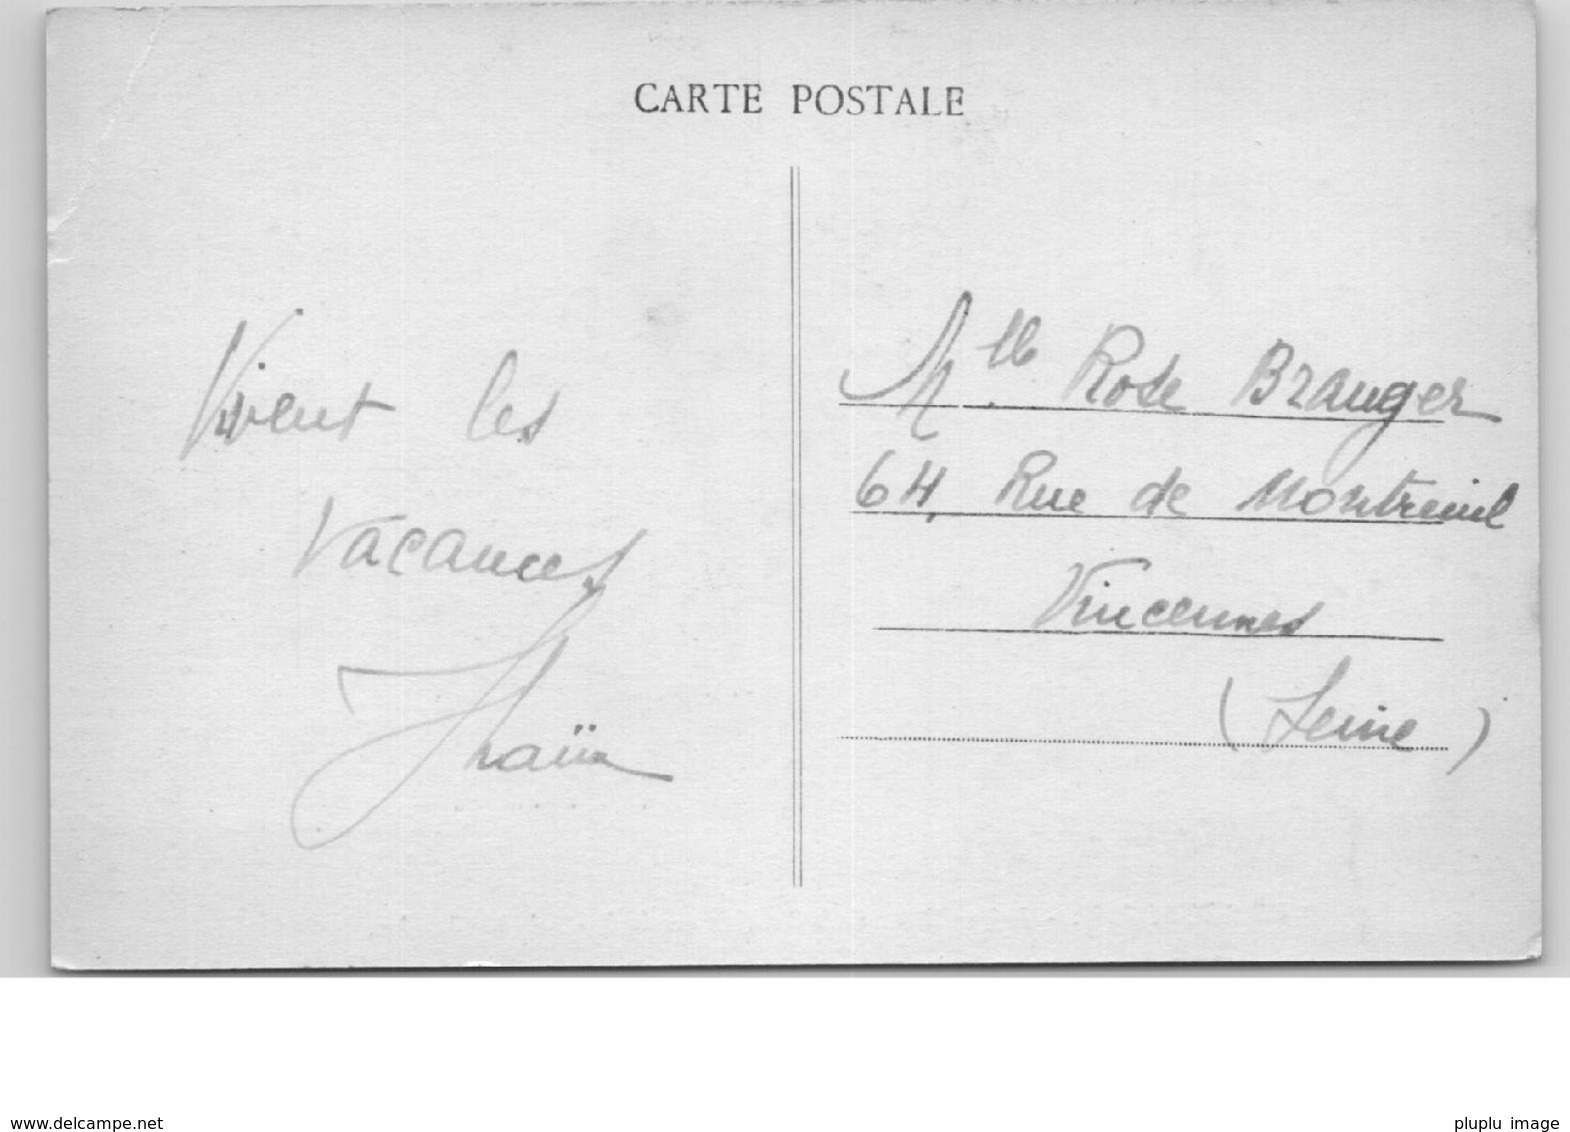 CARTE POSTALE
Vivent les
vacances
Mlle Rose Branger
64, Rue de Montreuil
Vincennes
(Seine)
www.delcampe.net
pluplu image